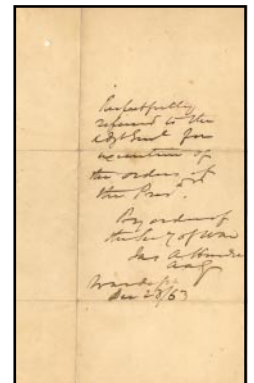 Respectfully
referred to the
Adjt Genl for
execution of
the orders of
the Presdt.
By order of
the Secy of War
Jas A Hardie
AAG
War Dept
Dec 28/63